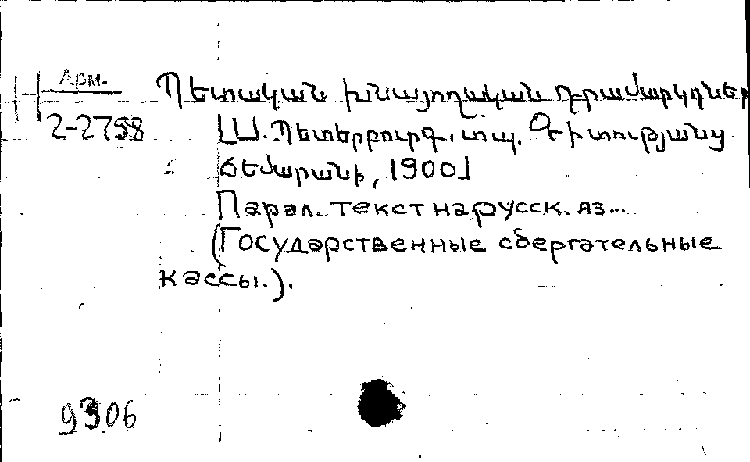 Арм.
2-2798
Պետական խնայողական դրամարկղներ
[Ս. Պետերբուրգ, տպ. Գիտությանց
ճեմարանի, 1900]
Парал. текст на русск. яз...
(Государственные сберегательные
кассы.).
9306